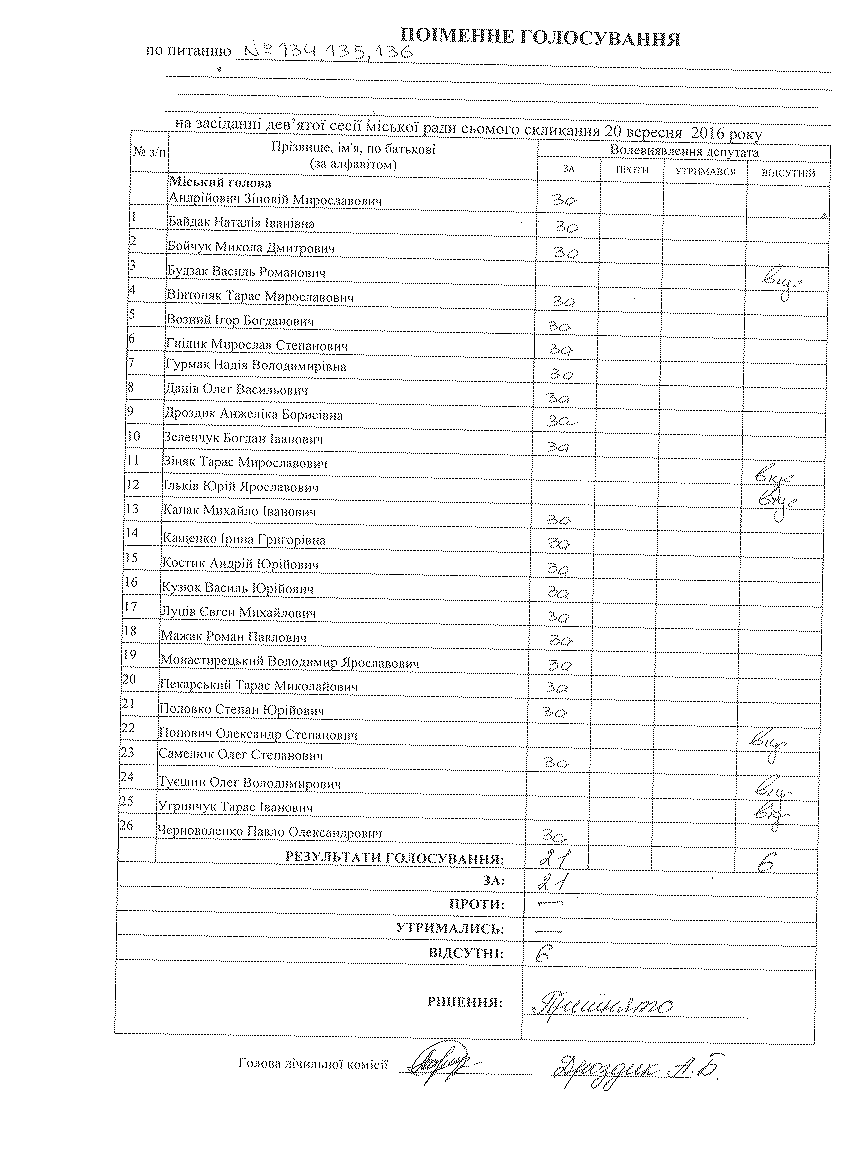 ПОІМЕННЕ ГОЛОСУВАННЯ
по питанню № 134, 135, 136
на засіданні дев'ятої сесії міської ради сьомого скликання 20 вересня 2016 року
№ з/п Прізвище, ім'я, по батькові (за алфавітом) Волевиявлення депутата
ЗА ПРОТИ УТРИМАВСЯ ВІДСУТНІЙ
Міський голова
Андрійович Зіновій Мирославович за
1 Байдак Наталія Іванівна за
2 Бойчук Микола Дмитрович за
3 Будзак Василь Романович відс
4 Вінтоняк Тарас Мирославович за
5 Возний Ігор Богданович за
6 Гнідик Мирослав Степанович за
7 Гурмак Надія Володимирівна за
8 Данів Олег Васильович за
9 Дроздик Анжеліка Борисівна за
10 Зеленчук Богдан Іванович за
11 Зіняк Тарас Мирославович відс
12 Ільків Юрій Ярославович відс
13 Капак Михайло Іванович за
14 Кащенко Ірина Григорівна за
15 Костик Андрій Юрійович за
16 Кузюк Василь Юрійович за
17 Луців Євген Михайлович за
18 Мажак Роман Павлович за
19 Монастирецький Володимир Ярославович за
20 Пекарський Тарас Миколайович за
21 Половко Степан Юрійович за
22 Попович Олександр Степанович відс
23 Самелюк Олег Степанович за
24 Туєшин Олег Володимирович відс
25 Угринчук Тарас Іванович відс
26 Черноволенко Павло Олександрович за
РЕЗУЛЬТАТИ ГОЛОСУВАННЯ: 21 6
ЗА: 21
ПРОТИ: —
УТРИМАЛИСЬ: —
ВІДСУТНІ: 6
РІШЕННЯ: Прийнято
Голова лічильної комісії Дроздик А.Б.